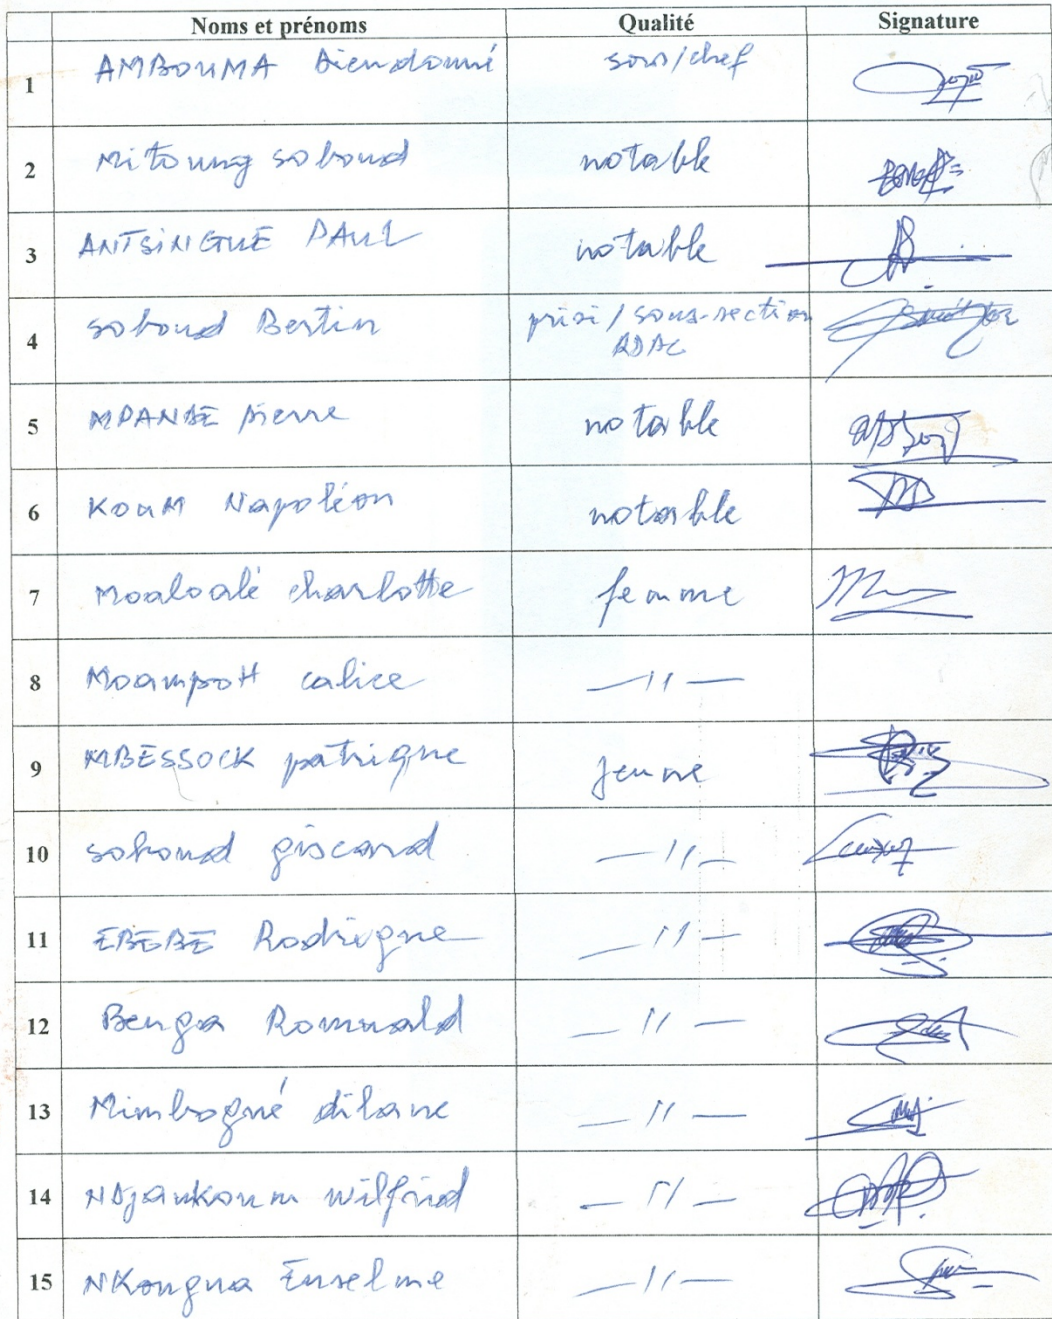 Noms et prénoms Qualité Signature
1 AMBOUMA Dieudonné sous/chef
2 Mitoung soboud notable
3 ANTSINGUE PAUL notable
4 soboud Bertin prisi/sous-section
RDPC
5 MPANBE Pierre notable
6 KOUM Napoléon notable
7 Moaloalé charlotte femme
8 Moampott calice —//—
9 MBESSOCK patrique jeune
10 soboud giscard —//—
11 EBEBE Rodrigue —//—
12 Benga Romuald —//—
13 Mimbogné dilane —//—
14 NDjankoum wilfrid —//—
15 NKongna Enselme —//—